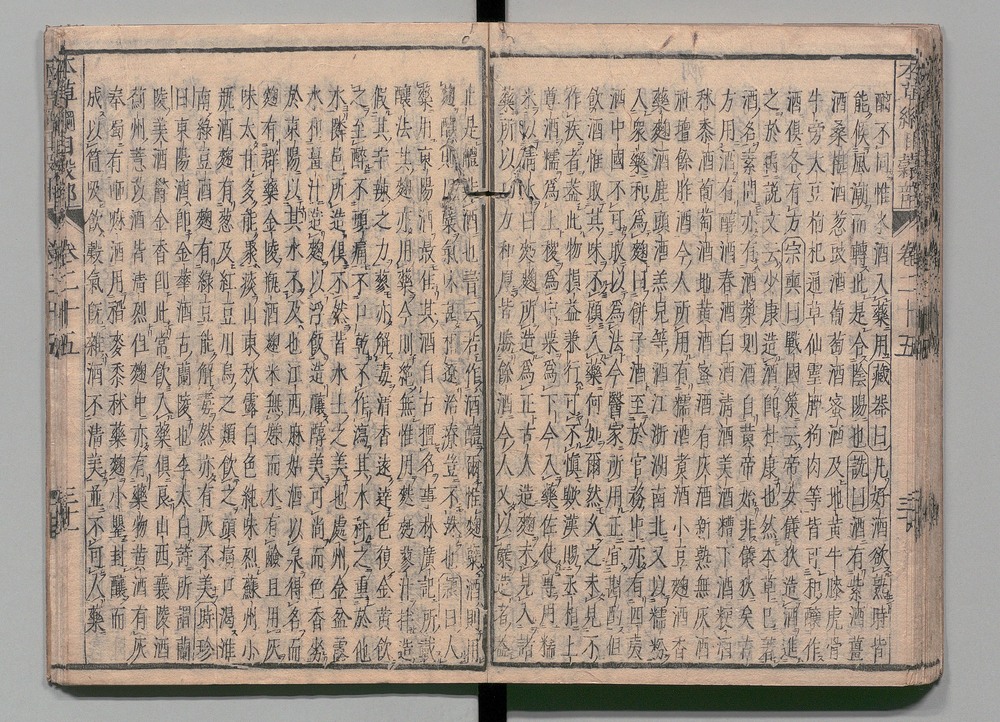 本草綱目穀部 卷二十五
醑不同惟米酒入藥用藏器曰凡好酒欲熟時皆
能候風潮而轉此是合陰陽也詵曰酒有紫酒薑
酒桑椹酒葱豉酒葡萄酒蜜酒及地黄牛膝虎骨
牛旁大豆枸杞通草仙靈脾狗肉等皆可和釀作
酒俱各有方宗奭曰戰國策云帝女儀狄造酒進
之於禹説文云少康造酒即杜康也然本草已著
酒名素問亦有酒漿則酒自黄帝始非儀狄矣古
方用酒有醇酒春酒白酒清酒美酒糟下酒粳酒
秫黍酒葡萄酒地黄酒蜜酒有灰酒新熟無灰酒
社壇餘胙酒今人所用有糯酒煮酒小豆麴酒香
藥麴酒鹿頭酒羔兒等酒江浙湖南北又以糯粉
入衆藥和爲麴曰餅子酒至於官務中亦有四夷
酒中國不可取以爲法今醫家所用正宜斟酌但
飲酒惟取其味不顧入藥何如爾然久之未見不
作疾者蓋此物損益兼行可不慎歟漢賜丞相上
尊酒糯爲上稷爲中粟爲下今入藥佐使專用糯
米以清水白麪麴所造爲正古人造麴未見入諸
藥所以功力和厚皆勝餘酒今人又以糵造者蓋
止是醴非酒也書云若作酒醴爾惟麴糵酒則用
麴醴則用糵氣味甚相遼治療豈不殊也頴曰入
藥用東陽酒最佳其酒自古擅名事林廣記所載
釀法其麴亦用藥今則絶無惟用麩麪蓼汁拌造
假其辛辣之力蓼亦解毒清香遠達色復金黄飲
之至醉不頭痛不口乾不作瀉其水秤之重於他
水鄰邑所造俱不然皆水土之美也處州金盆露
水和薑汁造麴以浮飯造釀醇美可尚而色香劣
於東陽以其水不及也江西麻姑酒以泉得名而
麴有群藥金陵瓶酒麴米無嫌而水有鹼且用灰
味太甘多能聚痰山東秋露白色純味烈蘇州小
瓶酒麴有葱及紅豆川烏之類飲之頭痛口渴淮
南緑豆酒麴有緑豆能解毒然亦有灰不美時珍
曰東陽酒即金華酒古蘭陵也李太白詩所謂蘭
陵美酒鬱金香即此常飲入藥俱良山西襄陵酒
薊州薏苡酒皆清烈但麴中亦有藥物黄酒有灰
秦蜀有咂嘛酒用稻麥黍秫藥麴小罌封釀而
成以筒吸飲穀氣既雜酒不清美並不可入藥
本草綱目穀部 卷二十五